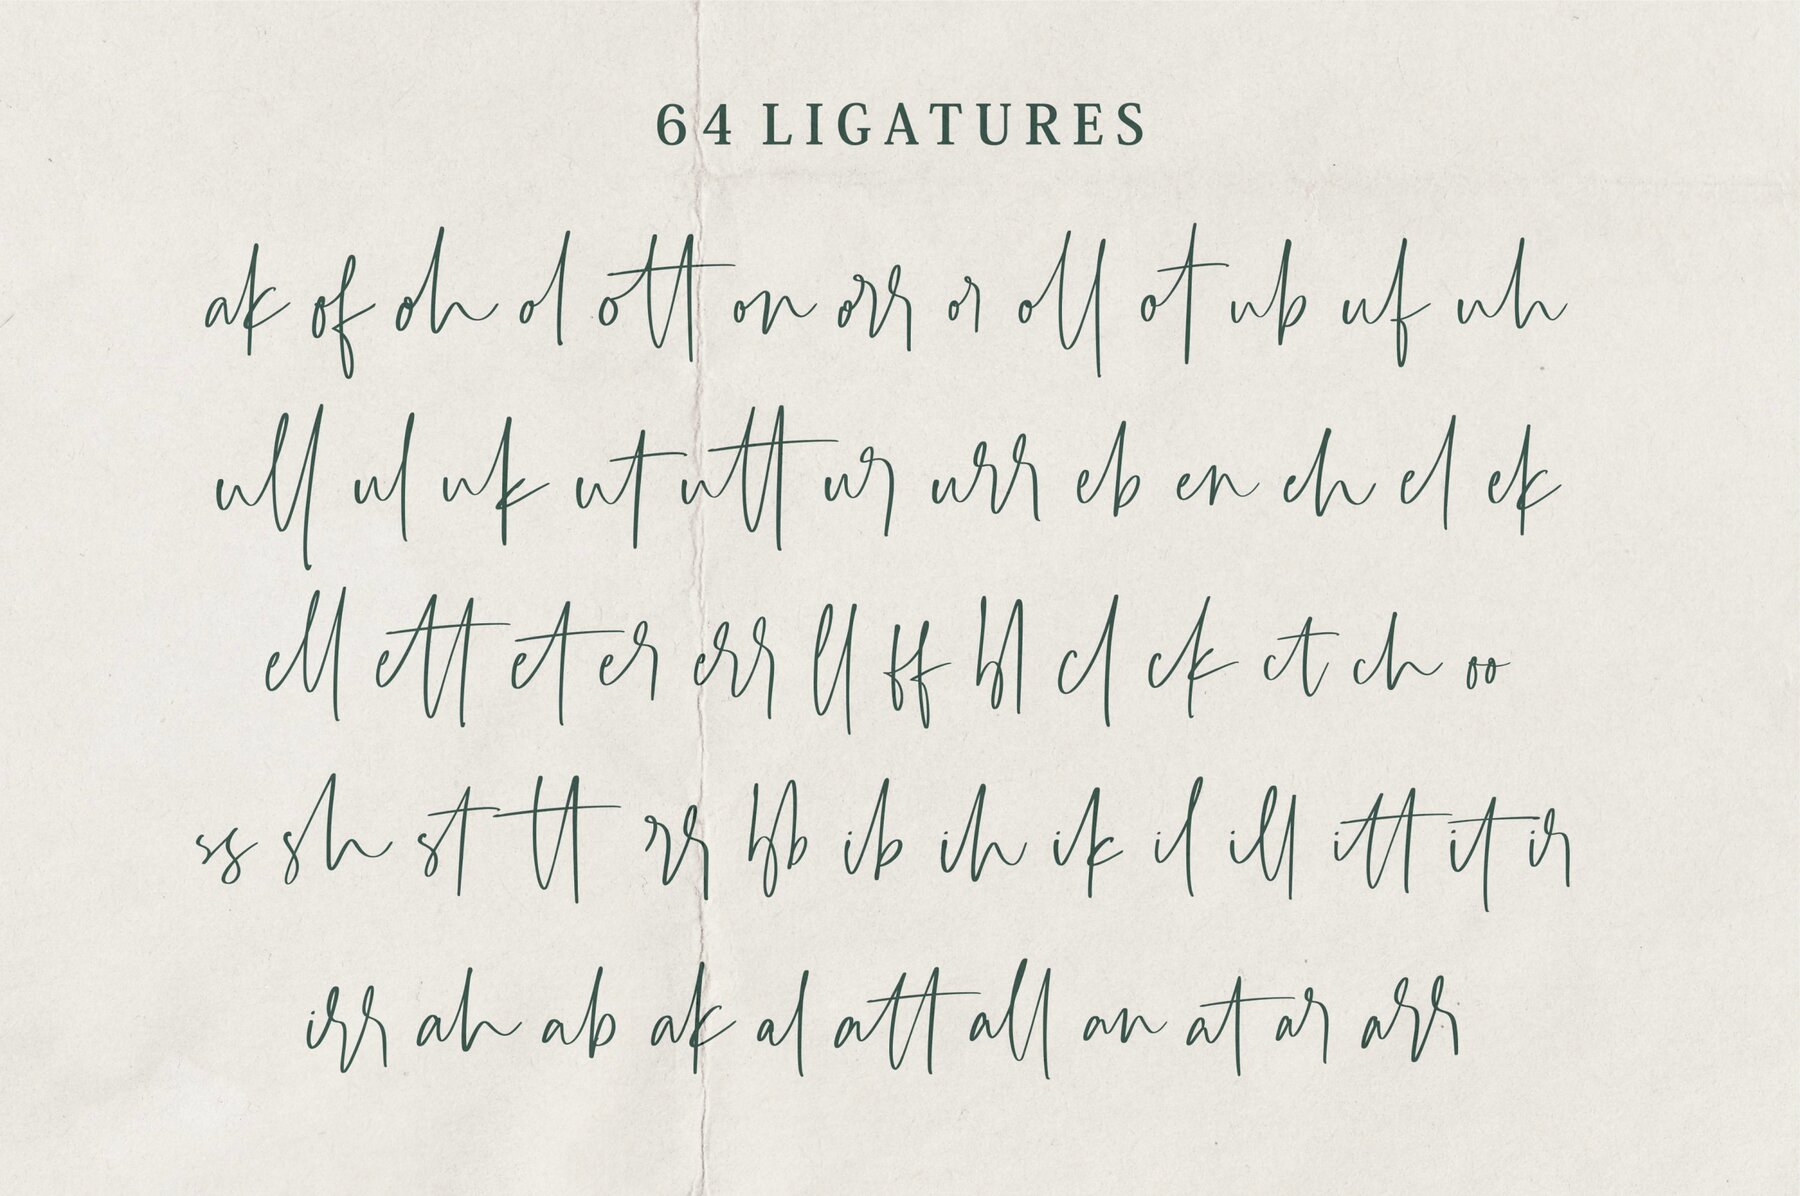 64 LIGATURES
ak of oh ol ott on orr or oll ot ub uf uh
ull ul uk ut utt ur urr eb en eh el ek
ell ett et er err ll ff fl cl ck ct ch oo
ss sh st tt rr fb ib ih ik il ill itt it ir
irr ah ab ak al att all an at ar arr